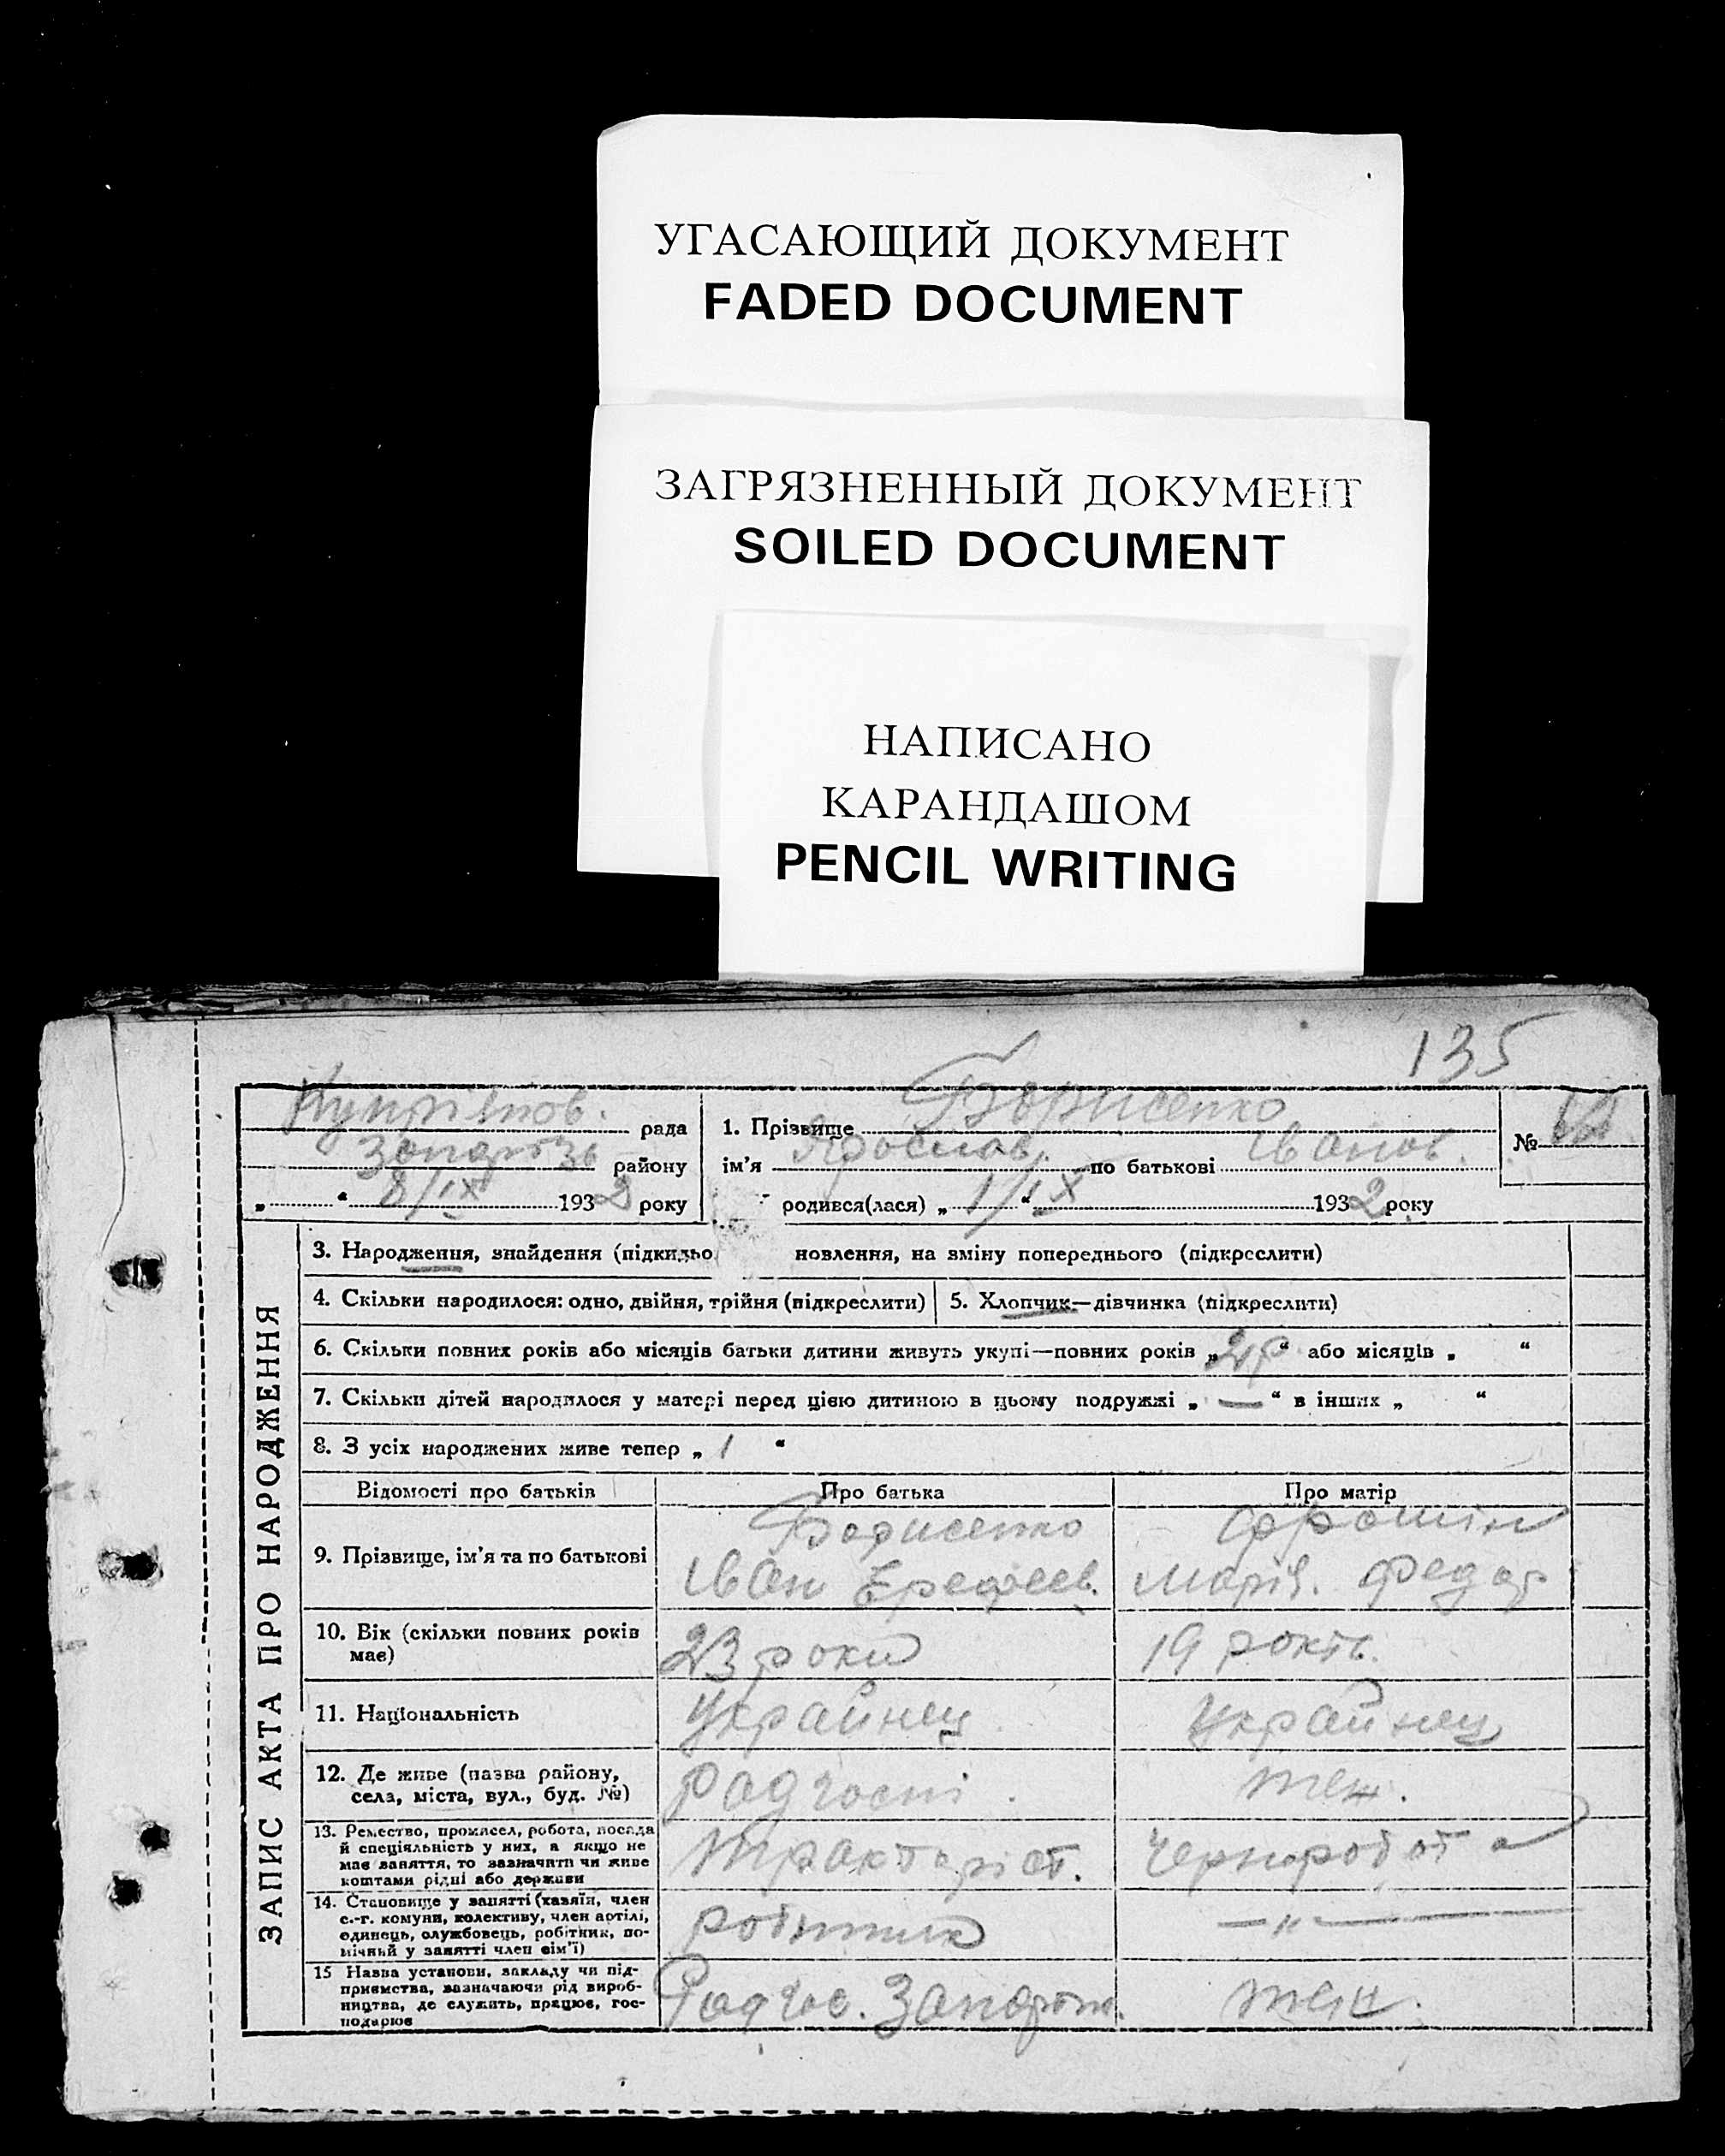 УГАСАЮЩИЙ ДОКУМЕНТ
FADED DOCUMENT
ЗАГРЯЗНЕННЫЙ ДОКУМЕНТ
SOILED DOCUMENT
НАПИСАНО
КАРАНДАШОМ
PENCIL WRITING
135
рада
району
„ “ 8/ІХ 1932 року
1. Прізвище Борисенко
ім’я Ярослав по батькові Іванов.
родився(лася) „ 1/ІХ “ 1932 року
№
ЗАПИС АКТА ПРО НАРОДЖЕННЯ
3. Народження, знайдення (підкидьо новлення, на зміну попереднього (підкреслити)
4. Скільки народилося: одно, двійня, трійня (підкреслити)
5. Хлопчик—дівчинка (підкреслити)
6. Скільки повних років або місяців батьки дитини живуть укупі—повних років „ 2 р “ або місяців „ “
7. Скільки дітей народилося у матері перед цією дитиною в цьому подружжі „ — “ в інших „ “
8. З усіх народжених живе тепер „ 1 “
Відомості про батьків
Про батька
Про матір
9. Прізвище, ім’я та по батькові
Борисенко
Іван Ерефеев.
Марія. Федор
10. Вік (скільки повних років
має)
23 роки
19 років.
11. Національність
Украйнец
Украйнец
12. Де живе (назва району,
села, міста, вул., буд. №)
Радгоспі.
теж.
13. Ремество, промисел, робота, посада
й спеціяльність у них, а якщо не
має заняття, то зазначити чи живе
коштами рідні або держави
тракторіст.
Чернороб
14. Становище у занятті (хазяїн, член
с.-г. комуни, колективу, член артілі,
одинець, службовець, робітник, по-
мічний у занятті член сім’ї)
робітник
— „ —
15 Назва установи, закладу чи під-
приємства, зазначаючи рід вироб-
ництва, де служить, працює, гос-
подарює
Радгос. Запоріж.
теж.